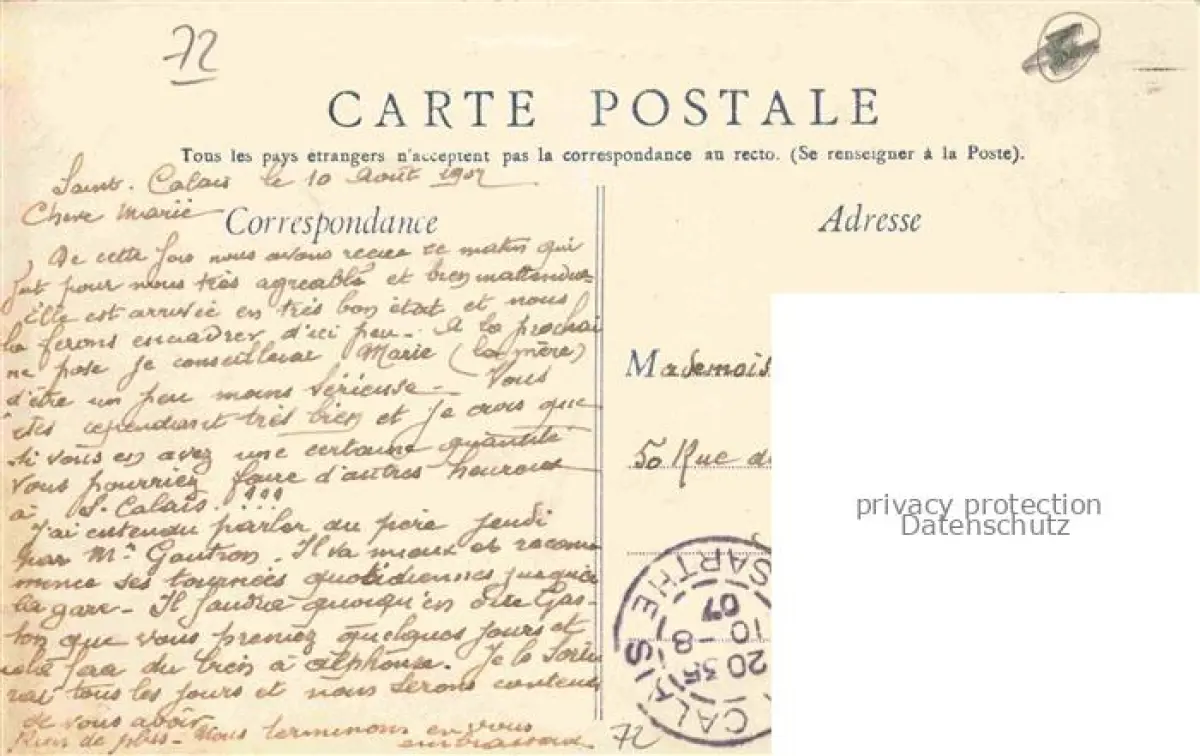 72
CARTE POSTALE
Tous les pays étrangers n'acceptent pas la correspondance au recto. (Se renseigner à la Poste).
Saint-Calais le 10 Août 1907
Chere Marie
Correspondance
De cette fois nous avons recue ce matin qui
fut pour nous très agreable et bien inattendue
Elle est arrivée en très bon état et nous
la ferons encadrer d'ici peu. A la prochai
ne pose je conseillerai Marie (la mère)
d'être un peu moins sérieuse - Vous
êtes cependant très bien et je crois que
si vous en avez une certaine quantité
vous pourriez faire d'autres heureux
à St-Calais!!!
J'ai entendu parler du père jeudi
par Mr Gautron. Il va mieux et recom
mence ses tournées quotidiennes jusqu'à
la gare - Il faudra quoiqu'en dise Gas-
ton que vous preniez quelques jours et
cela fera du bien à Alphonse. Je le sorti
rai tous les jours et nous serons contents
de vous avoir
Rien de plus - Nous terminons en vous
embrassant
Adresse
Mademois
50 Rue d
privacy protection
Datenschutz
ST CALAIS
SARTHE
20 35
10-8
07
72